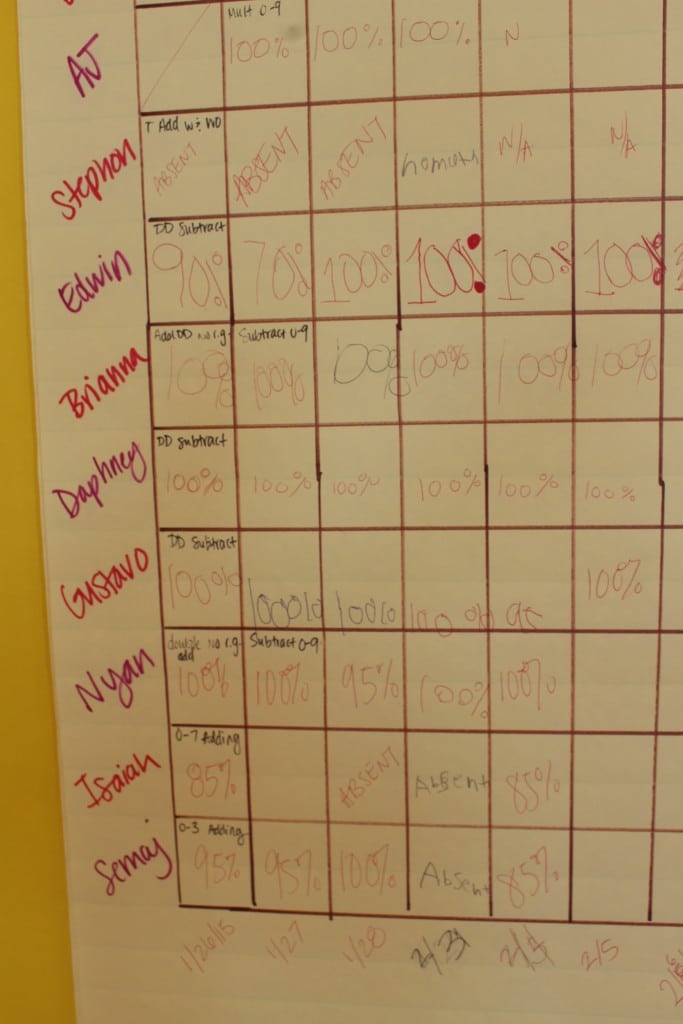 Mult 0-9
AJ 100% 100% 100% N
T Add w & WO
Stephon ABSENT ABSENT ABSENT N/A N/A
DD Subtract
Edwin 90% 70% 100% 100% 100% 100%
Add DD no r.g. Subtract 0-9
Brianna 100% 100% 100% 100% 100% 100%
DD Subtract
Daphney 100% 100% 100% 100% 100% 100%
DD Subtract
Gustavo 100% 100% 100% 100% 95 100%
double no r.g. add Subtract 0-9
Nyan 100% 100% 95% 100% 100%
0-7 Adding
Isaiah 85% ABSENT Absent 85%
0-3 Adding
Semaj 95% 95% 100% Absent 85%
1/26/15 1/27 1/28 2/3 2/4 2/5